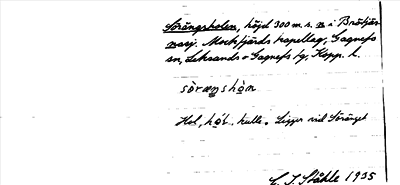 Sörängsholen, höjd 300 m. s. n i Brötjär-
nasj. Mockfjärds kapellag, Gagnefs
sn, Leksands o Gagnefs tg, Kopp. l.
sòrængshòn
Hol, hól, kulle. Ligger vid Söränget
C. I. Ståhle 1935